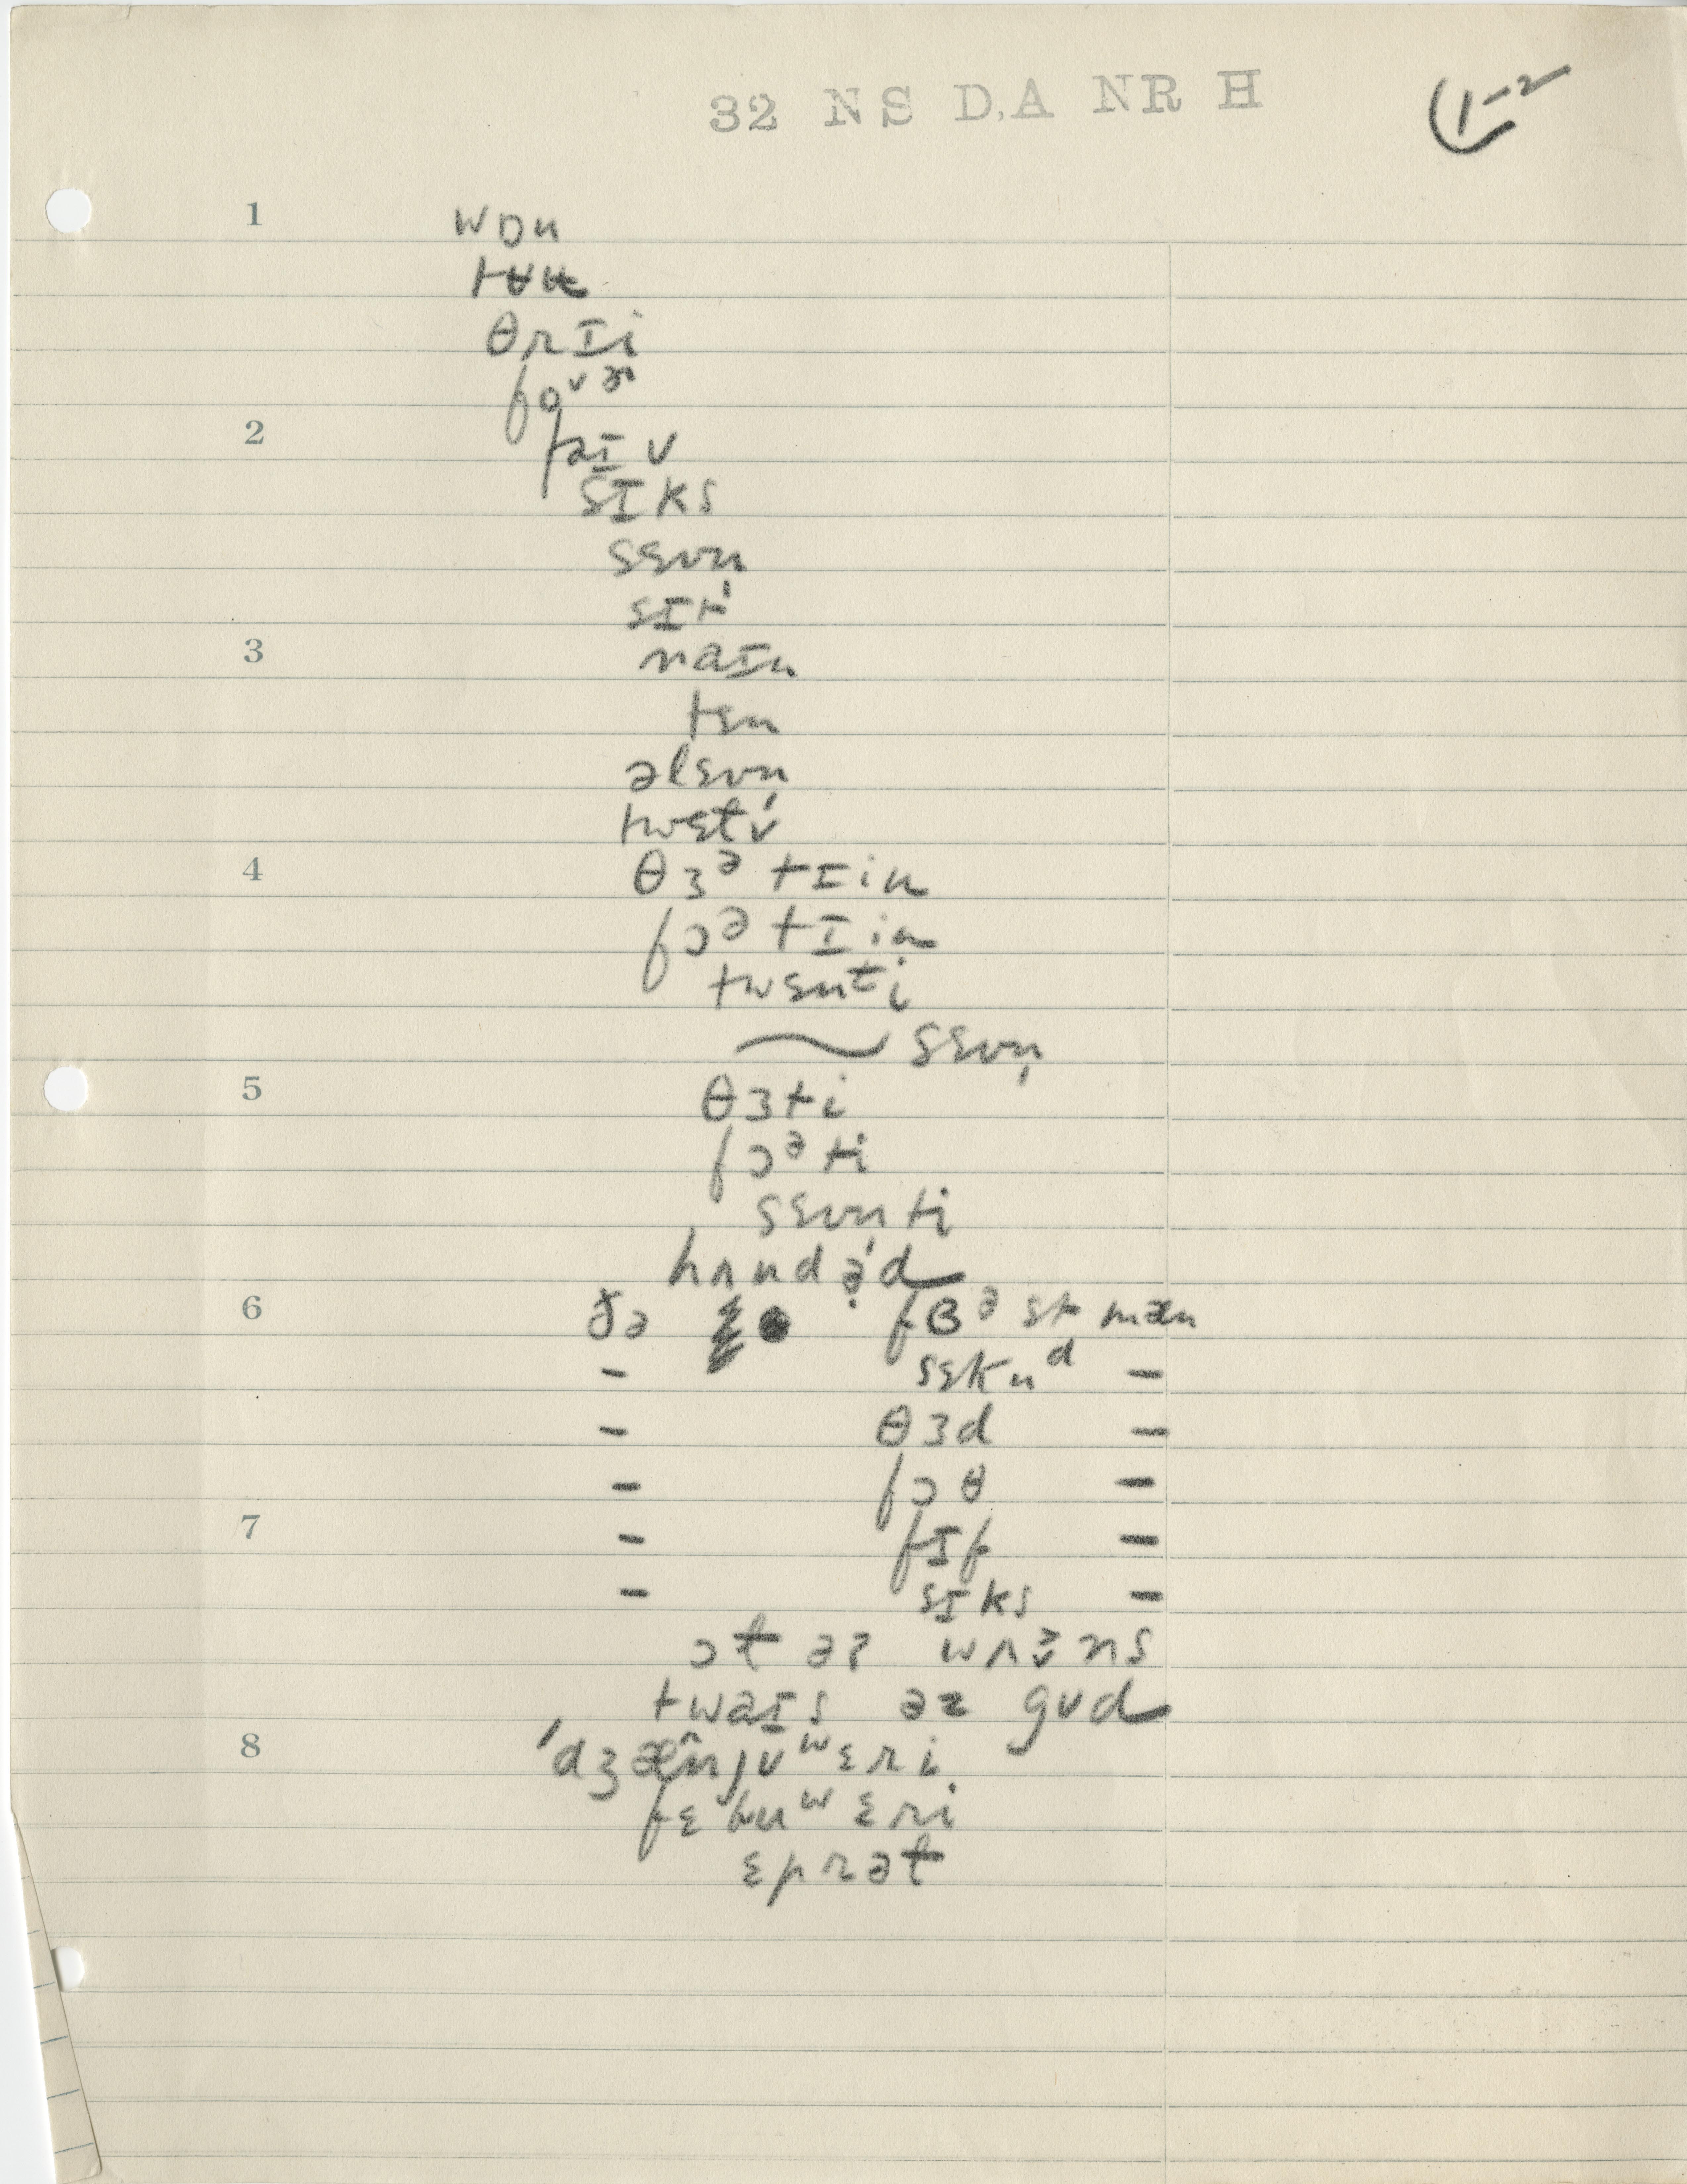 32 NS D.A NR H
1-2
1 wɒn
tʉʉ
θrɪi
foᶷɚ
2 faɪv
sɪks
sɛvn̩
naɪn
3
tɛn
əlɛvn̩
twɛɫv
4 θɜᵊtɪin
fɔᵊtɪin
twɛnti
⁓ sɛvn̩
5 θɜti
fɔᵊti
sɛvn̩ti
hʌndəd
6 ðə fɞᵊst mæn
- sɛknᵈ -
- θɜd -
- fɔθ -
7 - fɪf -
- sɪks -
ɔɫ əɾ wʌɜ̯ns
twaɪs əz gʊd
8 ˈdʒænjʊʷɛri
fɛbuʷɛri
ɛprəɫ